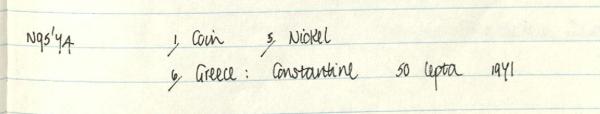 N95'4A 1, Coin 3, Nickel
6, Greece : Constantine 50 lepta 1971